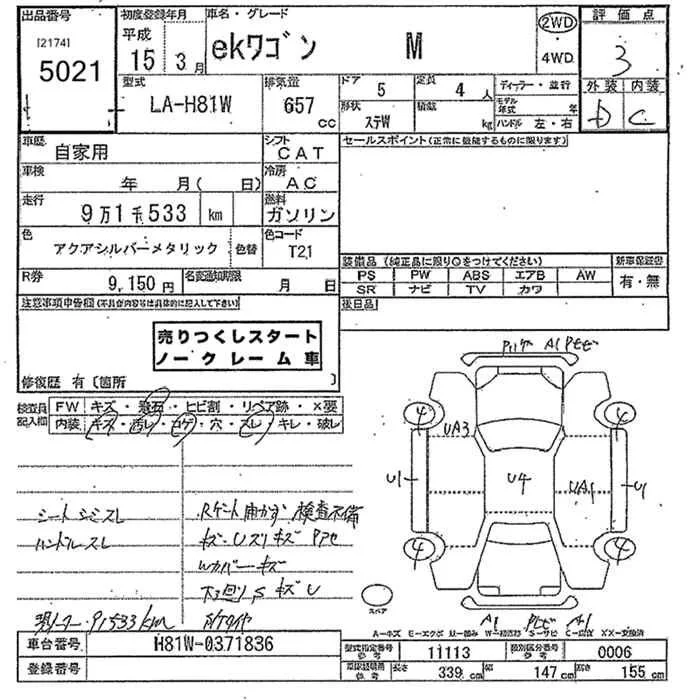 出品番号
[2174]
5021
初度登録年月
平成
15 3月
車名・グレード
ekワゴン M
2WD
4WD
評価点
3
外装 内装
D C
型式
LA-H81W
排気量
657 cc
ドア 5
定員 4 人
形状 ステW
積載 kg
ディーラー・並行
モデル年式 年
ハンドル 左・右
車歴
自家用
シフト
CAT
車検
年 月( 日)
冷房
AC
走行
9万1千533 km
燃料
ガソリン
色
アクアシルバーメタリック
色替
色コード
T21
R券
9,150円
名変通知期限
月 日
セールスポイント(正常に機能するものに限ります)
装備品 (純正品に限り○をつけてください)
PS PW ABS エアB AW
SR ナビ TV カワ
新車保証書
有・無
後日品
注意事項申告欄(不具合内容等は具体的に記入して下さい)
売りつくしスタート
ノークレーム車
修復歴 有 〔箇所 〕
検査員記入欄
FW キズ・飛石・ヒビ割・リペア跡・X要
内装 キズ・汚レ・コゲ・穴・スレ・キレ・破レ
シートシミスレ
ハンドルスレ
検査不備
Wカバーキズ
下回りSキズU
91533km
A1
UA3
U1
U4
UA1
U1
4
4
4
4
スペア
A1
A1
A-キズ E-エクボ U-凹み W-補修跡 S-サビ C-腐食 XX-交換済
車台番号
H81W-0371836
登録番号
型式指定番号 参考
11113
類別区分番号 参考
0006
車検証積用 参考
長さ 339 cm
幅 147 cm
高さ 155 cm